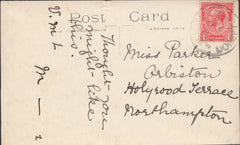 Post Card
Thought you
might like
this.
V. m. L
M
Miss Parker
Orbiston
Holyrood Terrace
Northampton